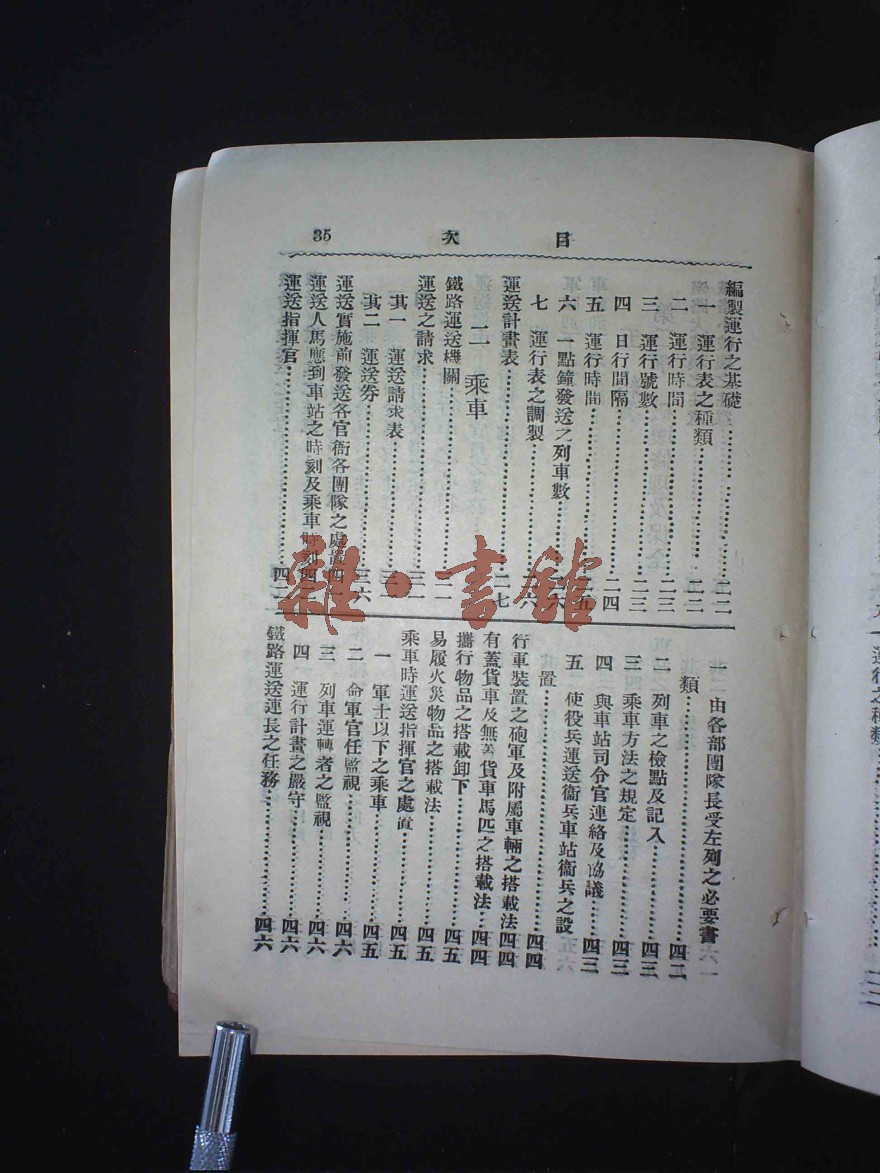 目次 35
編製運行之基礎……二二
一 運行表之種類……二二
二 運行時間……二三
三 運行號數……二三
四 日行間隔……二四
五 運行時間……二五
六 一點鐘發送之列車數……二六
七 運行表之調製……二六
運送計畫表……二七
二 乘車
鐵路運送機關
運送之請求
其一 運送請求表
其二 運送券……三六
運送實施前發送各官衙各團隊之處置
運送人馬應到車站之時刻及乘車時刻
運送指揮官……四二
一 由各部團隊長受左列之必要書
類……四二
二 列車之檢點及記入……四三
三 乘車方法之規定……四三
四 與車站司令官連絡及協議……四三
五 使役兵運送衞兵車站衞兵之設
置……四四
行軍裝置之砲軍及附屬車輛之搭載法 四四
有蓋貨車及無蓋貨車馬匹之搭載法…四四
攜行物品之搭載卸下……四五
易履火災物品之搭載法……四五
乘車時運送指揮官之處置……四五
一 軍士以下之乘車……四五
二 命軍官任監視……四六
三 列車運轉者之監視……四六
四 運行計畫之嚴守……四六
鐵路運送連長之任務……四六
雜·書館